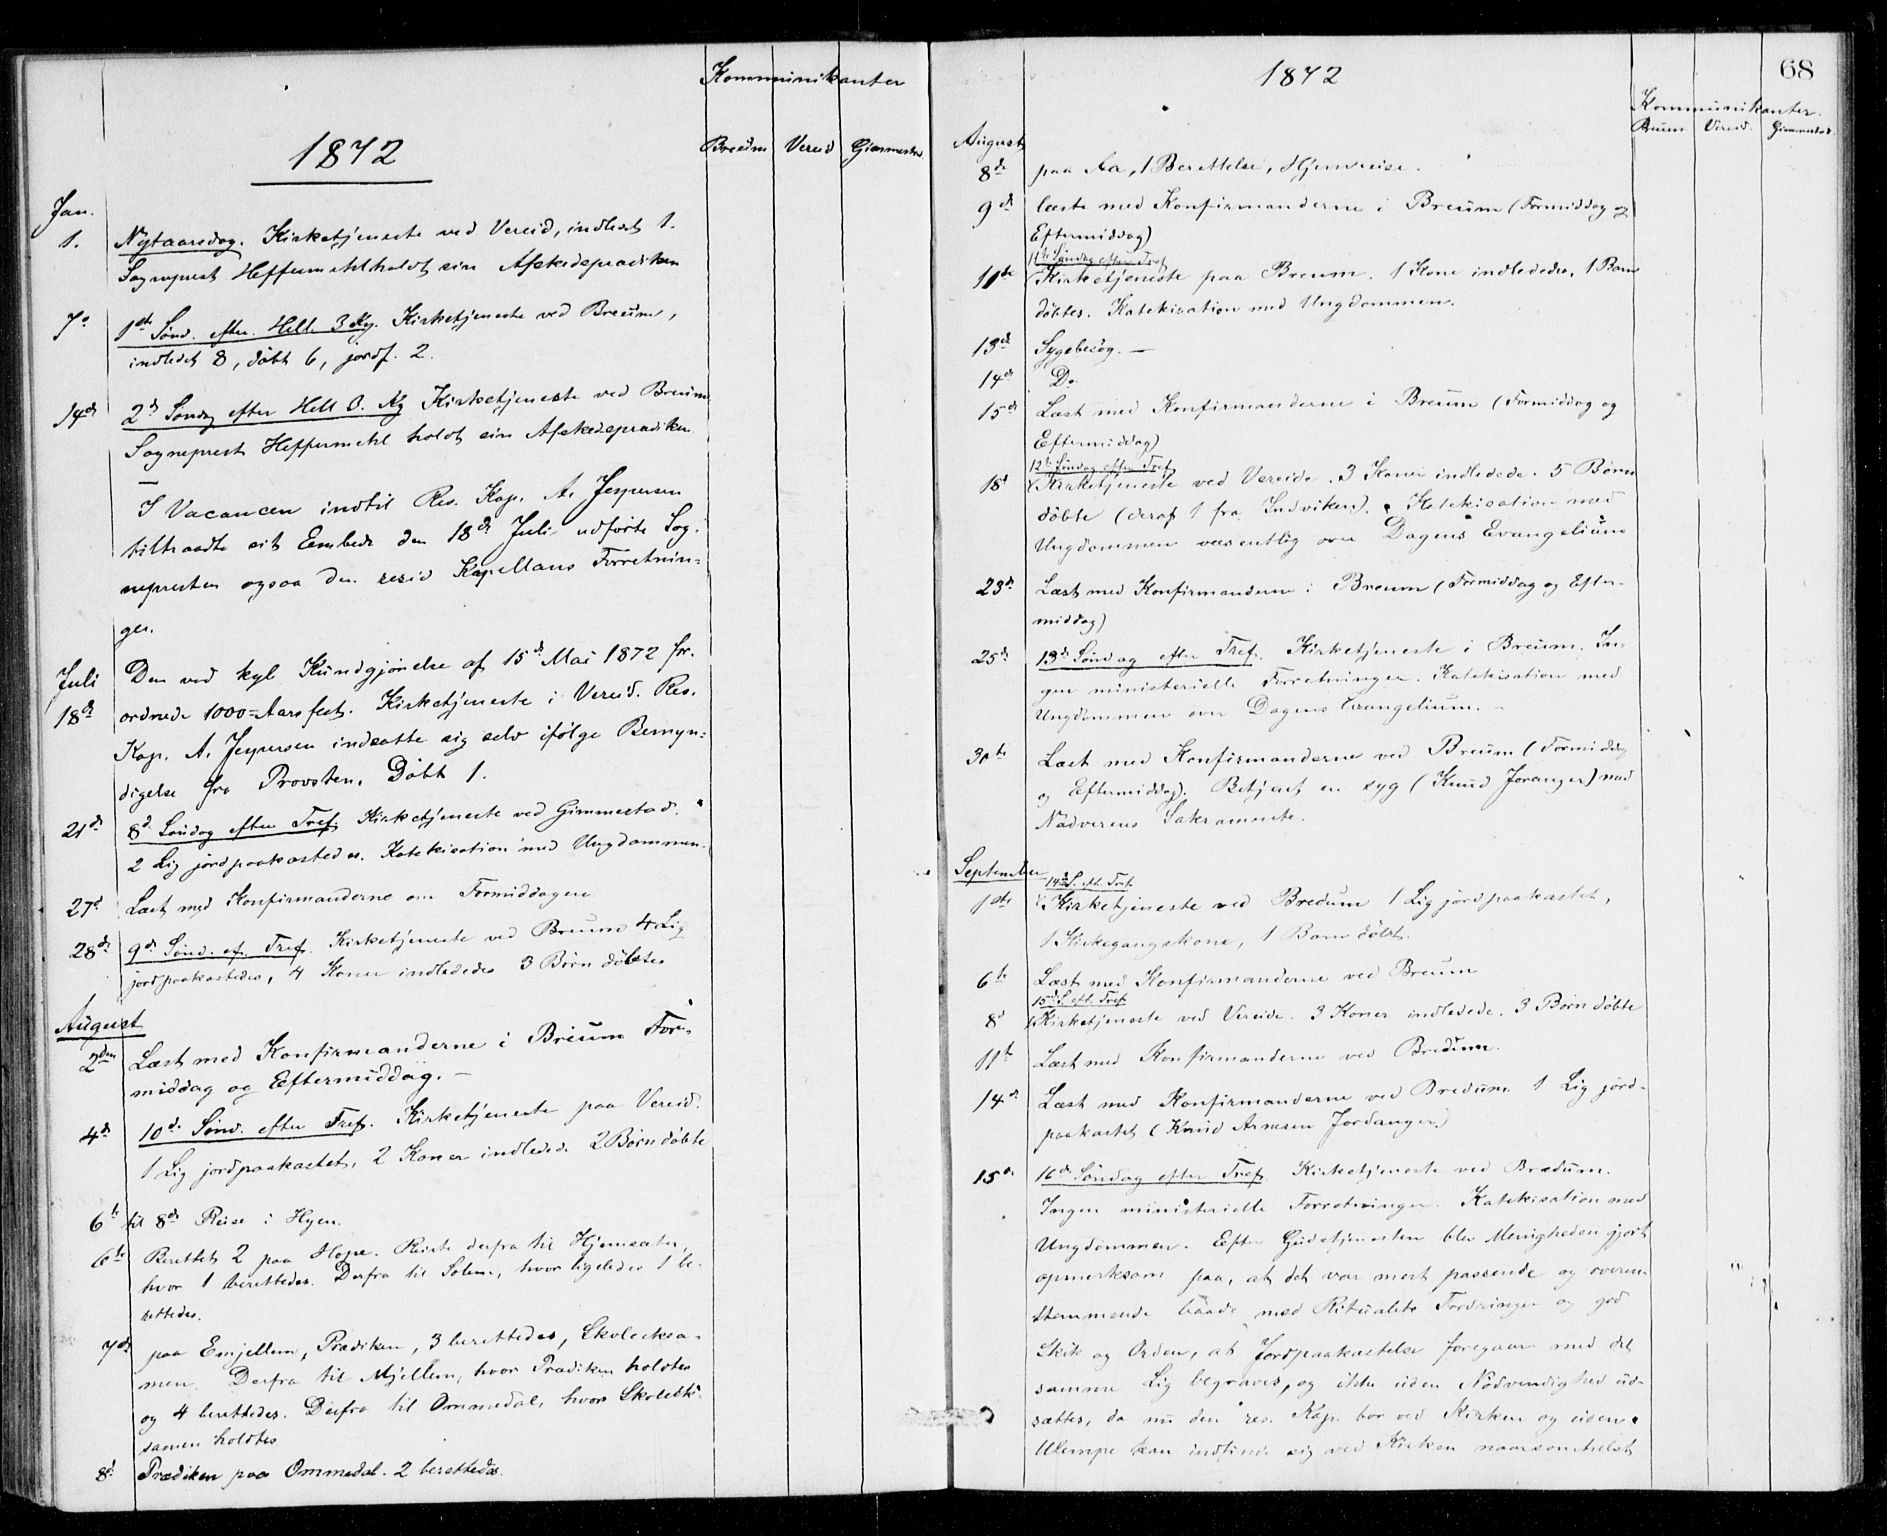 Kommunikanter
1872
Breum Vereid Gimmestad
Jan.
1. Nytaarsdag. Kirketjeneste ved Vereid, indledet 1.
Sogneprest Heffermehl holdt sin Afskedsprædiken
7de 1ste Sønd. efter Hell. 3 Kg. Kirketjeneste ved Breum,
indledet 8, døbt 6, jordf. 2.
14de 2d Søndag efter Hell. 3. Kg Kirketjeneste ved Breum
Sogneprest Heffermehl holdt sin Afskedsprædiken
I Vacancen indtil Res. Kap. A. Jespersen
tiltraadte sit Embede den 18de Juli udførte Sog-
nepresten ogsaa den resid Kapellans Forretnin-
ger.
Juli Den ved kgl. Kundgjørelse af 15de Mai 1872 for-
18de ordnede 1000-Aarsfest. Kirketjeneste i Vereid. Res.
Kap. A. Jespersen indsatte sig selv ifølge Bemyn-
digelse fra Provsten. Døbt 1.
21de 8d Søndag efter Tref. Kirketjeneste ved Gimmestad.
2 Lig jordpaakastedes. Katekisation med Ungdommen.
27d Læst med Konfirmanderne om Formiddagen
28de 9de Sønd. ef. Tref. Kirketjeneste ved Breum 4 Lig
jordpaakastedes, 4 Koner indlededes 3 Børn døbtes
August
2den Læst med Konfirmanderne i Breum For-
middag og Eftermiddag. —
4de 10de Sønd. efter Tref. Kirketjeneste paa Vereid.
1 Lig jordpaakastet, 2 Koner indledede 2 Børn døbte
6te til 8de Reise i Hyen.
6te Berettet 2 paa Hope. Reiste derfra til Hjemsæter,
hvor 1 berettedes. Derfra til Solem, hvor ligeledes 1 be-
rettedes.
7de paa Emjellem, Prædiken, 3 berettedes, Skoleeksa-
men. Derfra til Mjellem, hvor Prædiken holdtes
og 4 berettedes. Derfra til Ommedal, hvor Skoleek-
samen holdtes
8d Prædiken paa Ommedal. 2 berettedes.
1872
68
Kommunikanter.
Breum Vereid. Gimmestad.
August
8de paa Aa, 1 Berettelse, Hjemreise.
9de læste med Konfirmanderne i Breum (Formiddag og
Eftermiddag)
11te Søndag efter Tref.
11te Kirketjeneste paa Breum. 1 Kone indlededes, 1 Barn
døbtes. Katekisation med Ungdommen.
13de Sygebesøg. —
14de Do
15de Læst med Konfirmanderne i Breum (Formiddag og
Eftermiddag)
12te Søndag efter Tref.
18d Kirketjeneste ved Vereide. 3 Koner indledede. 5 Børn
døbte (deraf 1 fra Indviken). Katekisation med
Ungdommen væsentlig over Dagens Evangelium
23de Læst med Konfirmanderne i Breum (Formiddag og Efter-
middag)
25de 13de Søndag efter Tref. Kirketjeneste i Breum. In-
gen ministerielle Forretninger. Katekisation med
Ungdommen over Dagens Evangelium. —
30te Læst med Konfirmanderne ved Breum (Formiddag
og Eftermiddag). Betjent en syg (Knud Joranger) med
Nadverens Sakramente.
September
14de S. eft. Tref.
1ste Kirketjeneste ved Bredum 1 Lig jordpaakastet,
1 Kirkegangskone, 1 Barn døbt.
6te Læst med Konfirmanderne ved Breum
15de S. eft. Tref.
8d Kirketjeneste ved Vereide. 3 Koner indledede. 3 Børn døbte
11te Læst med Konfirmanderne ved Bredum.
14de Læst med Konfirmanderne ved Bredum. 1 Lig jord-
paakastet (Knud Arnesen Jordanger.)
15de 16de Søndag efter Tref. Kirketjeneste ved Brædum.
Ingen ministerielle Forretninger. Katekisation med
Ungdommen. Efter Gudstjenesten blev Menigheden gjort
opmerksom paa, at det var mest passende og overen-
stemmende baade med Ritualets Fordringer og god
Skik og Orden, at Jordpaakastelse foregaar med det
samme Lig begraves, og ikke uden Nødvendighed ud-
sættes, da nu den res. Kap. bor ved Kirken og uden
Ulempe kan indfinde sig ved Kirken naarsomhelst